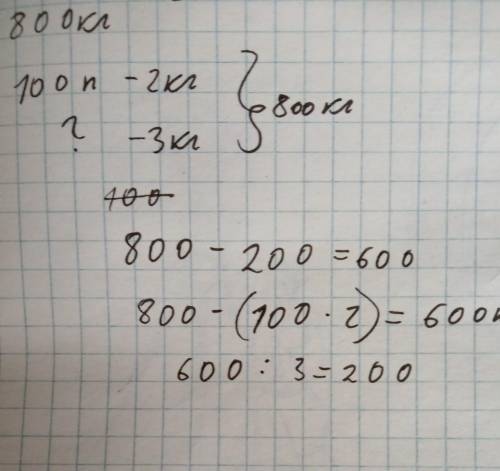 800кг
100п - 2кг
? - 3кг } 800кг
100
800 - 200 = 600
800 - (100 · 2) = 600к
600 : 3 = 200